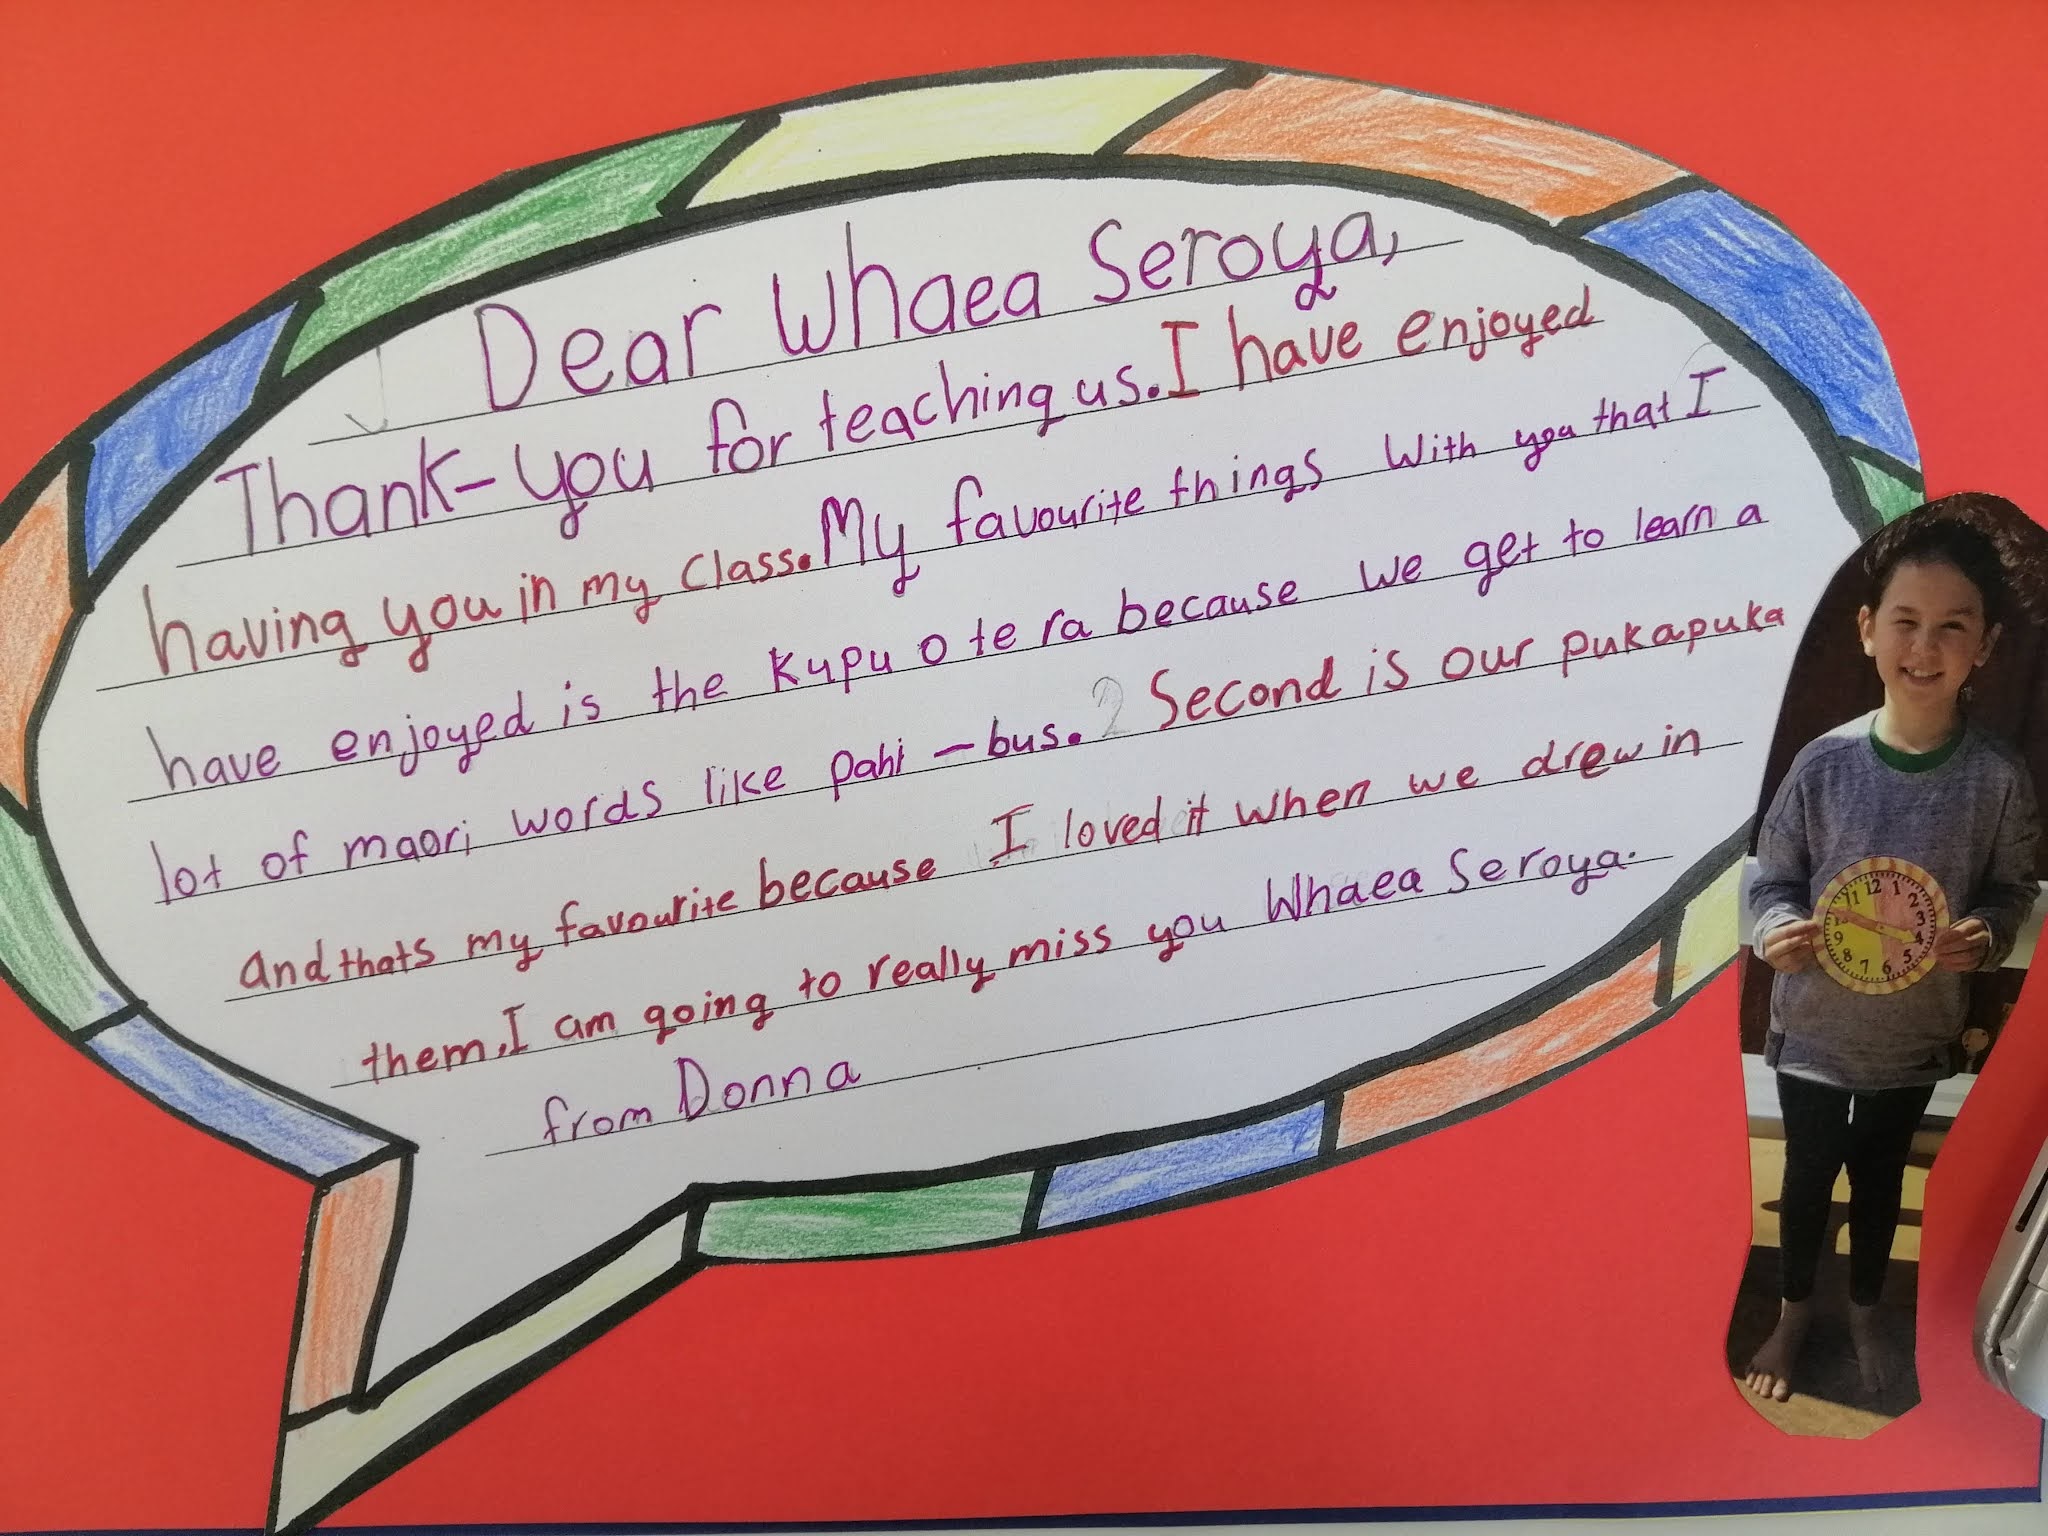 Dear Whaea Seroya,
Thank-you for teaching us. I have enjoyed
having you in my class. My favourite things with you that I
have enjoyed is the Kupu o te ra because we get to learn a
lot of maori words like pahi - bus. 2 Second is our pukapuka
and thats my favourite because I loved it when we drew in
them. I am going to really miss you Whaea Seroya.
from Donna
12
1
2
3
4
5
6
7
8
9
11